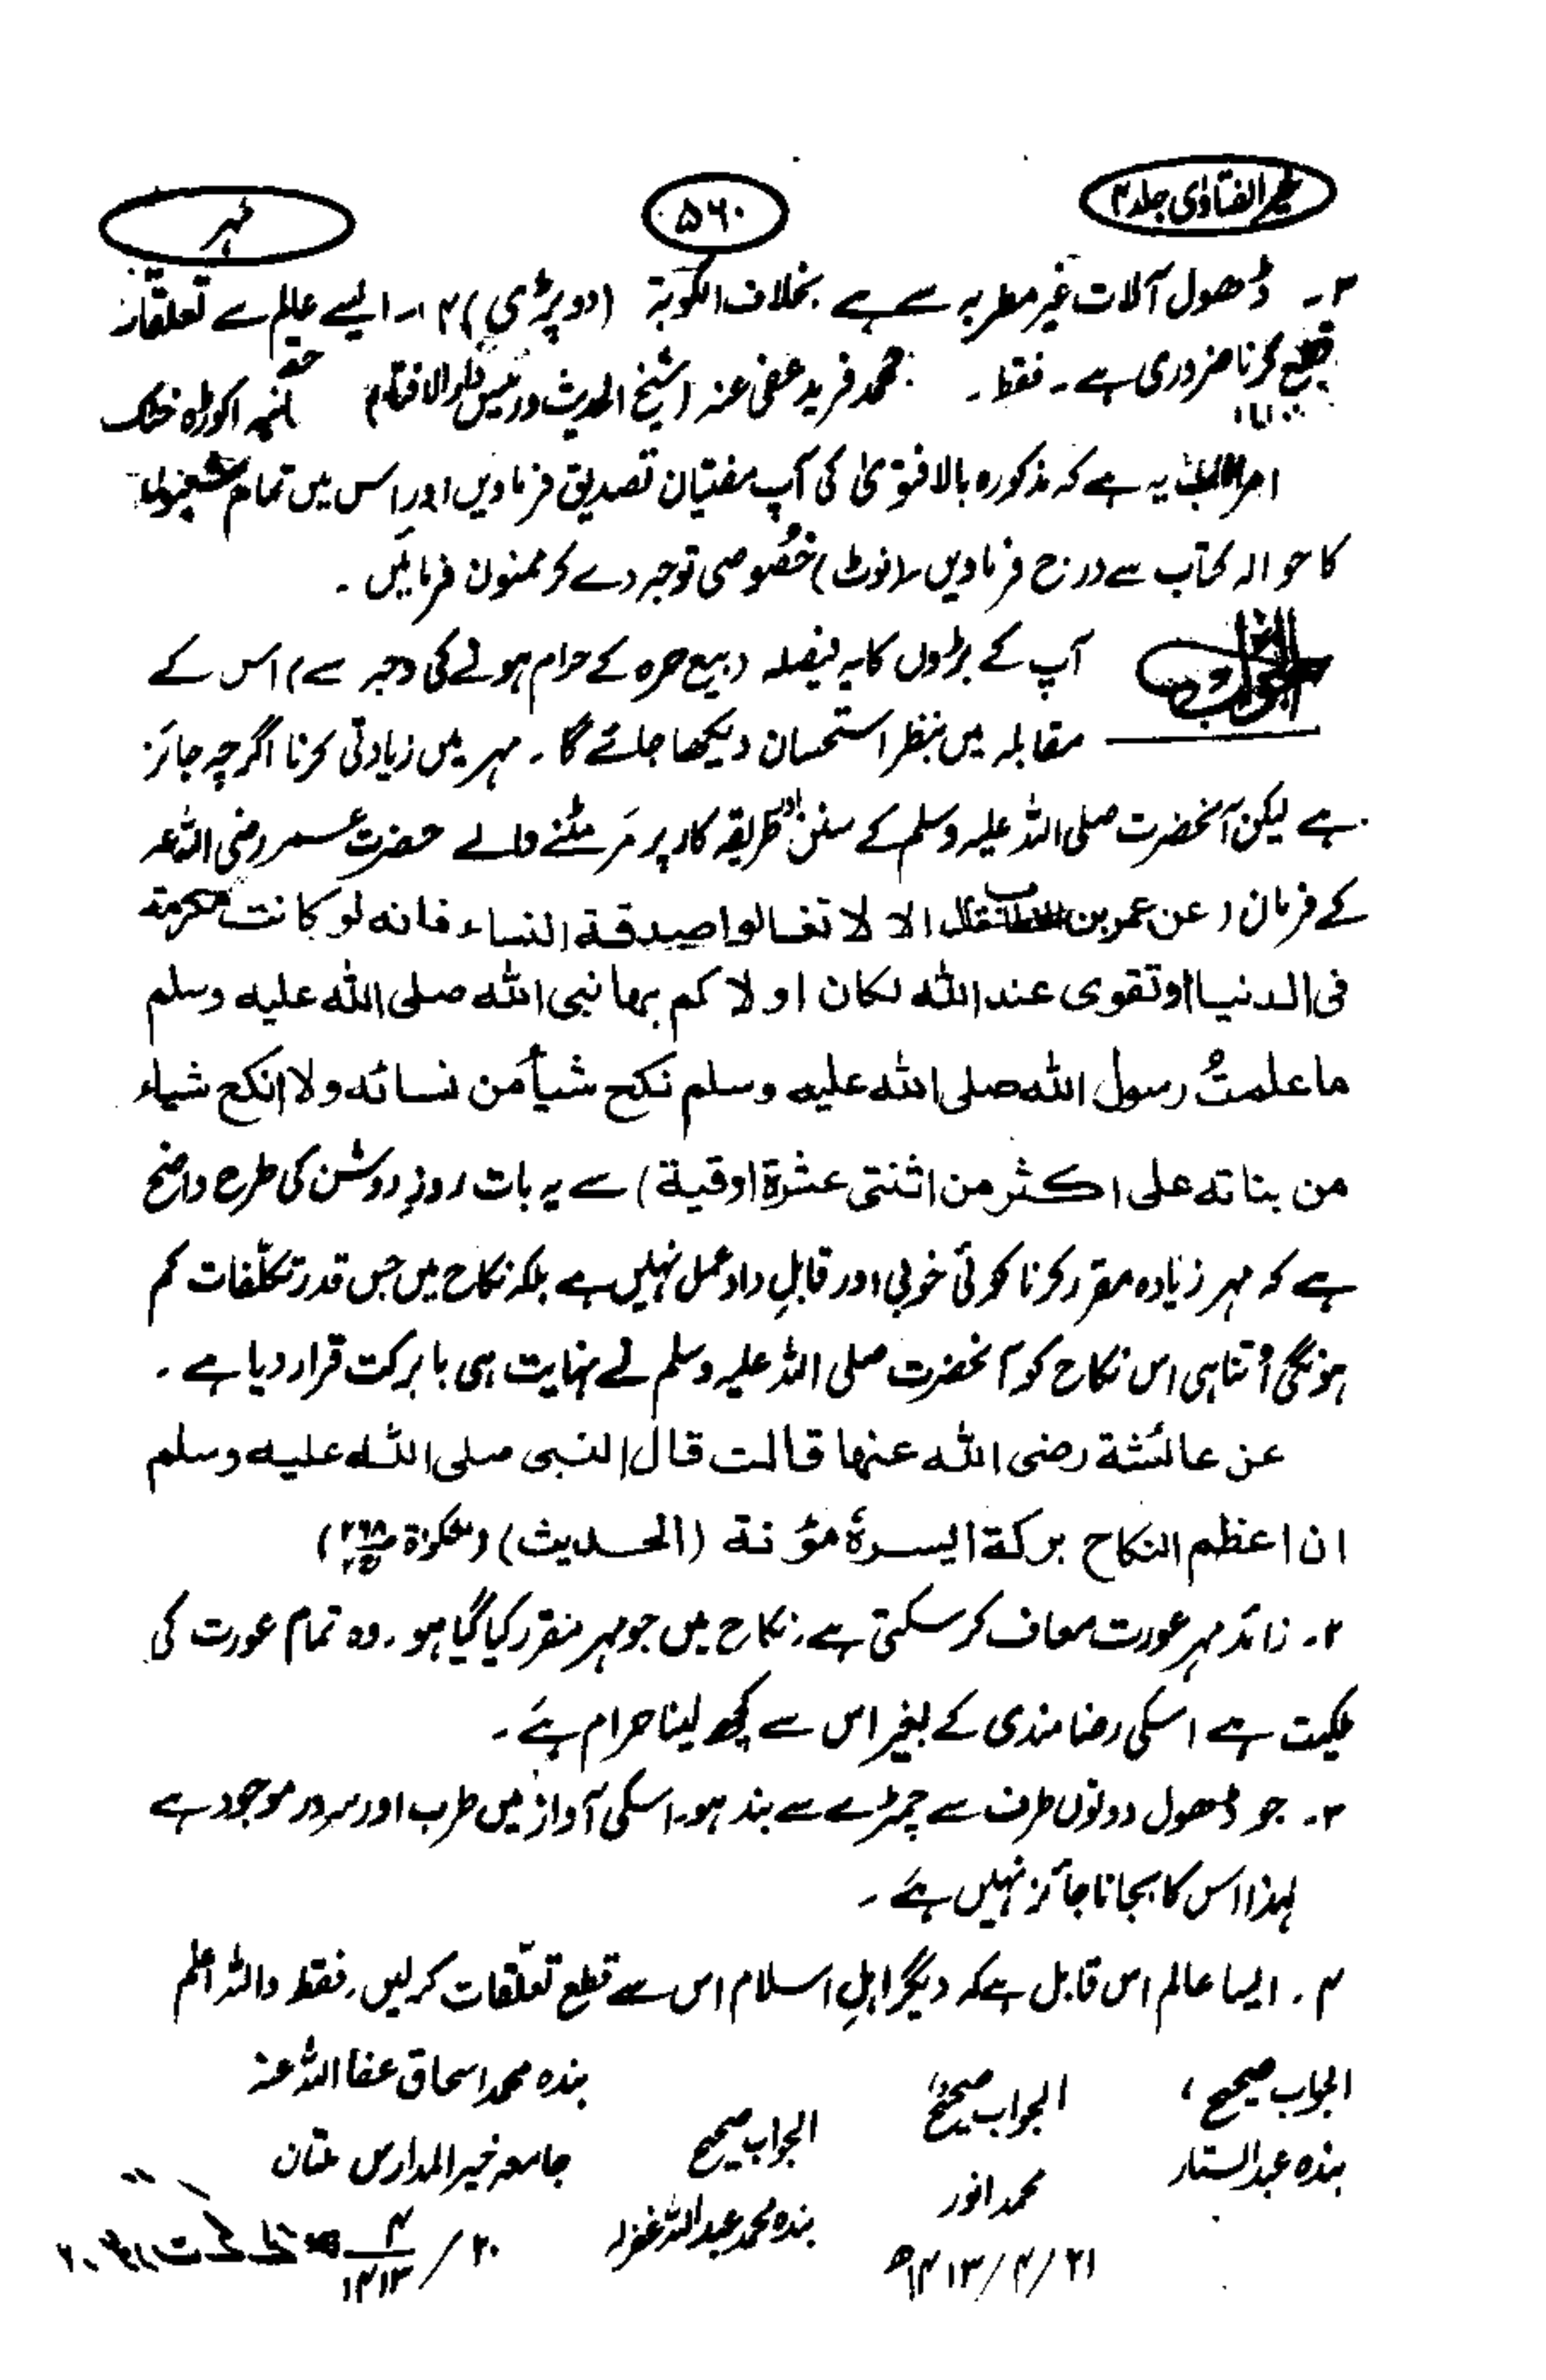 خیر الفتاوٰی جلد ۴
۵۶۰
مہر
۳۔ ڈھول آلات غیر مطربہ سے ہے بخلاف الکوبۃ (دو پڑی) ۴ ۔ ایسے عالم سے تعلقات
قطع کرنا ضروری ہے۔ فقط۔ محمد فرید عفی عنہ (شیخ الحدیث و رئیس دار الافتاء) حقانیہ اکوڑہ خٹک
امر المطلب یہ ہے کہ مذکورہ بالا فتویٰ کی آپ مفتیان تصدیق فرماویں اور اس میں تمام
کا حوالہ کتاب سے درج فرماویں (نوٹ) خصوصی توجہ دے کر ممنون فرمائیں ۔
الجواب آپ کے بڑوں کا یہ فیصلہ (بیع حرہ کے حرام ہونے کی وجہ سے) اس کے
مقابلہ میں بنظر استحسان دیکھا جائے گا۔ مہر میں زیادتی کرنا اگرچہ جائز
ہے لیکن آنحضرت صلی اللہ علیہ وسلم کے سنن اور طریقہ کار پر مَر مٹنے والے حضرت عمر رضی اللہ عنہ
کے فرمان (عن عمر بن الخطاب قال الا لا تغالوا صدقة النساء فانه لو كانت مكرمة
فی الدنیا او تقوی عند الله لکان اولاکم بہا نبی الله صلی الله علیه وسلم
ما علمتُ رسول الله صلی الله علیه وسلم نکح شیأ من نسائه ولا انکح شیاء
من بناته علی اکثر من اثنتی عشرة اوقیة) سے یہ بات روزِ روشن کی طرح واضح
ہے کہ مہر زیادہ مقرر کرنا کوئی خوبی اور قابلِ داد عمل نہیں ہے بلکہ نکاح میں جس قدر تکلّفات کم
ہونگی اُتنا ہی اس نکاح کو آنحضرت صلی اللہ علیہ وسلم نے نہایت ہی بابرکت قرار دیا ہے ۔
عن عائشة رضی الله عنها قالت قال النبی صلی الله علیه وسلم
ان اعظم النکاح برکة ایسرهٗ مؤنة (الحدیث) (مشکوٰۃ ص۲۶۸ ج۲)
۲۔ زائد مہر عورت معاف کر سکتی ہے، نکاح میں جو مہر مقرر کیا گیا ہو۔ وہ تمام عورت کی
ملکیت ہے اسکی رضامندی کے بغیر اس سے کچھ لینا حرام ہے ۔
۳۔ جو ڈھول دونوں طرف سے چمڑے سے بند ہو۔ اسکی آواز میں طرب اور سرور موجود ہے
لہذا اس کا بجانا جائز نہیں ہے ۔
۴۔ ایسا عالم اس قابل ہے کہ دیگر اہلِ اسلام اس سے قطع تعلّقات کرلیں۔ فقط واللہ اعلم
بندہ محمد اسحاق عفا اللہ عنہ
جامعہ خیر المدارس ملتان
۲۰/۴/۱۴۱۳
الجواب صحیح ،
بندہ عبدالستار
الجواب صحیح
محمد انور
۲۱/۴/۱۴۱۳ھ
الجواب صحیح
بندہ محمد عبداللہ غفرلہ